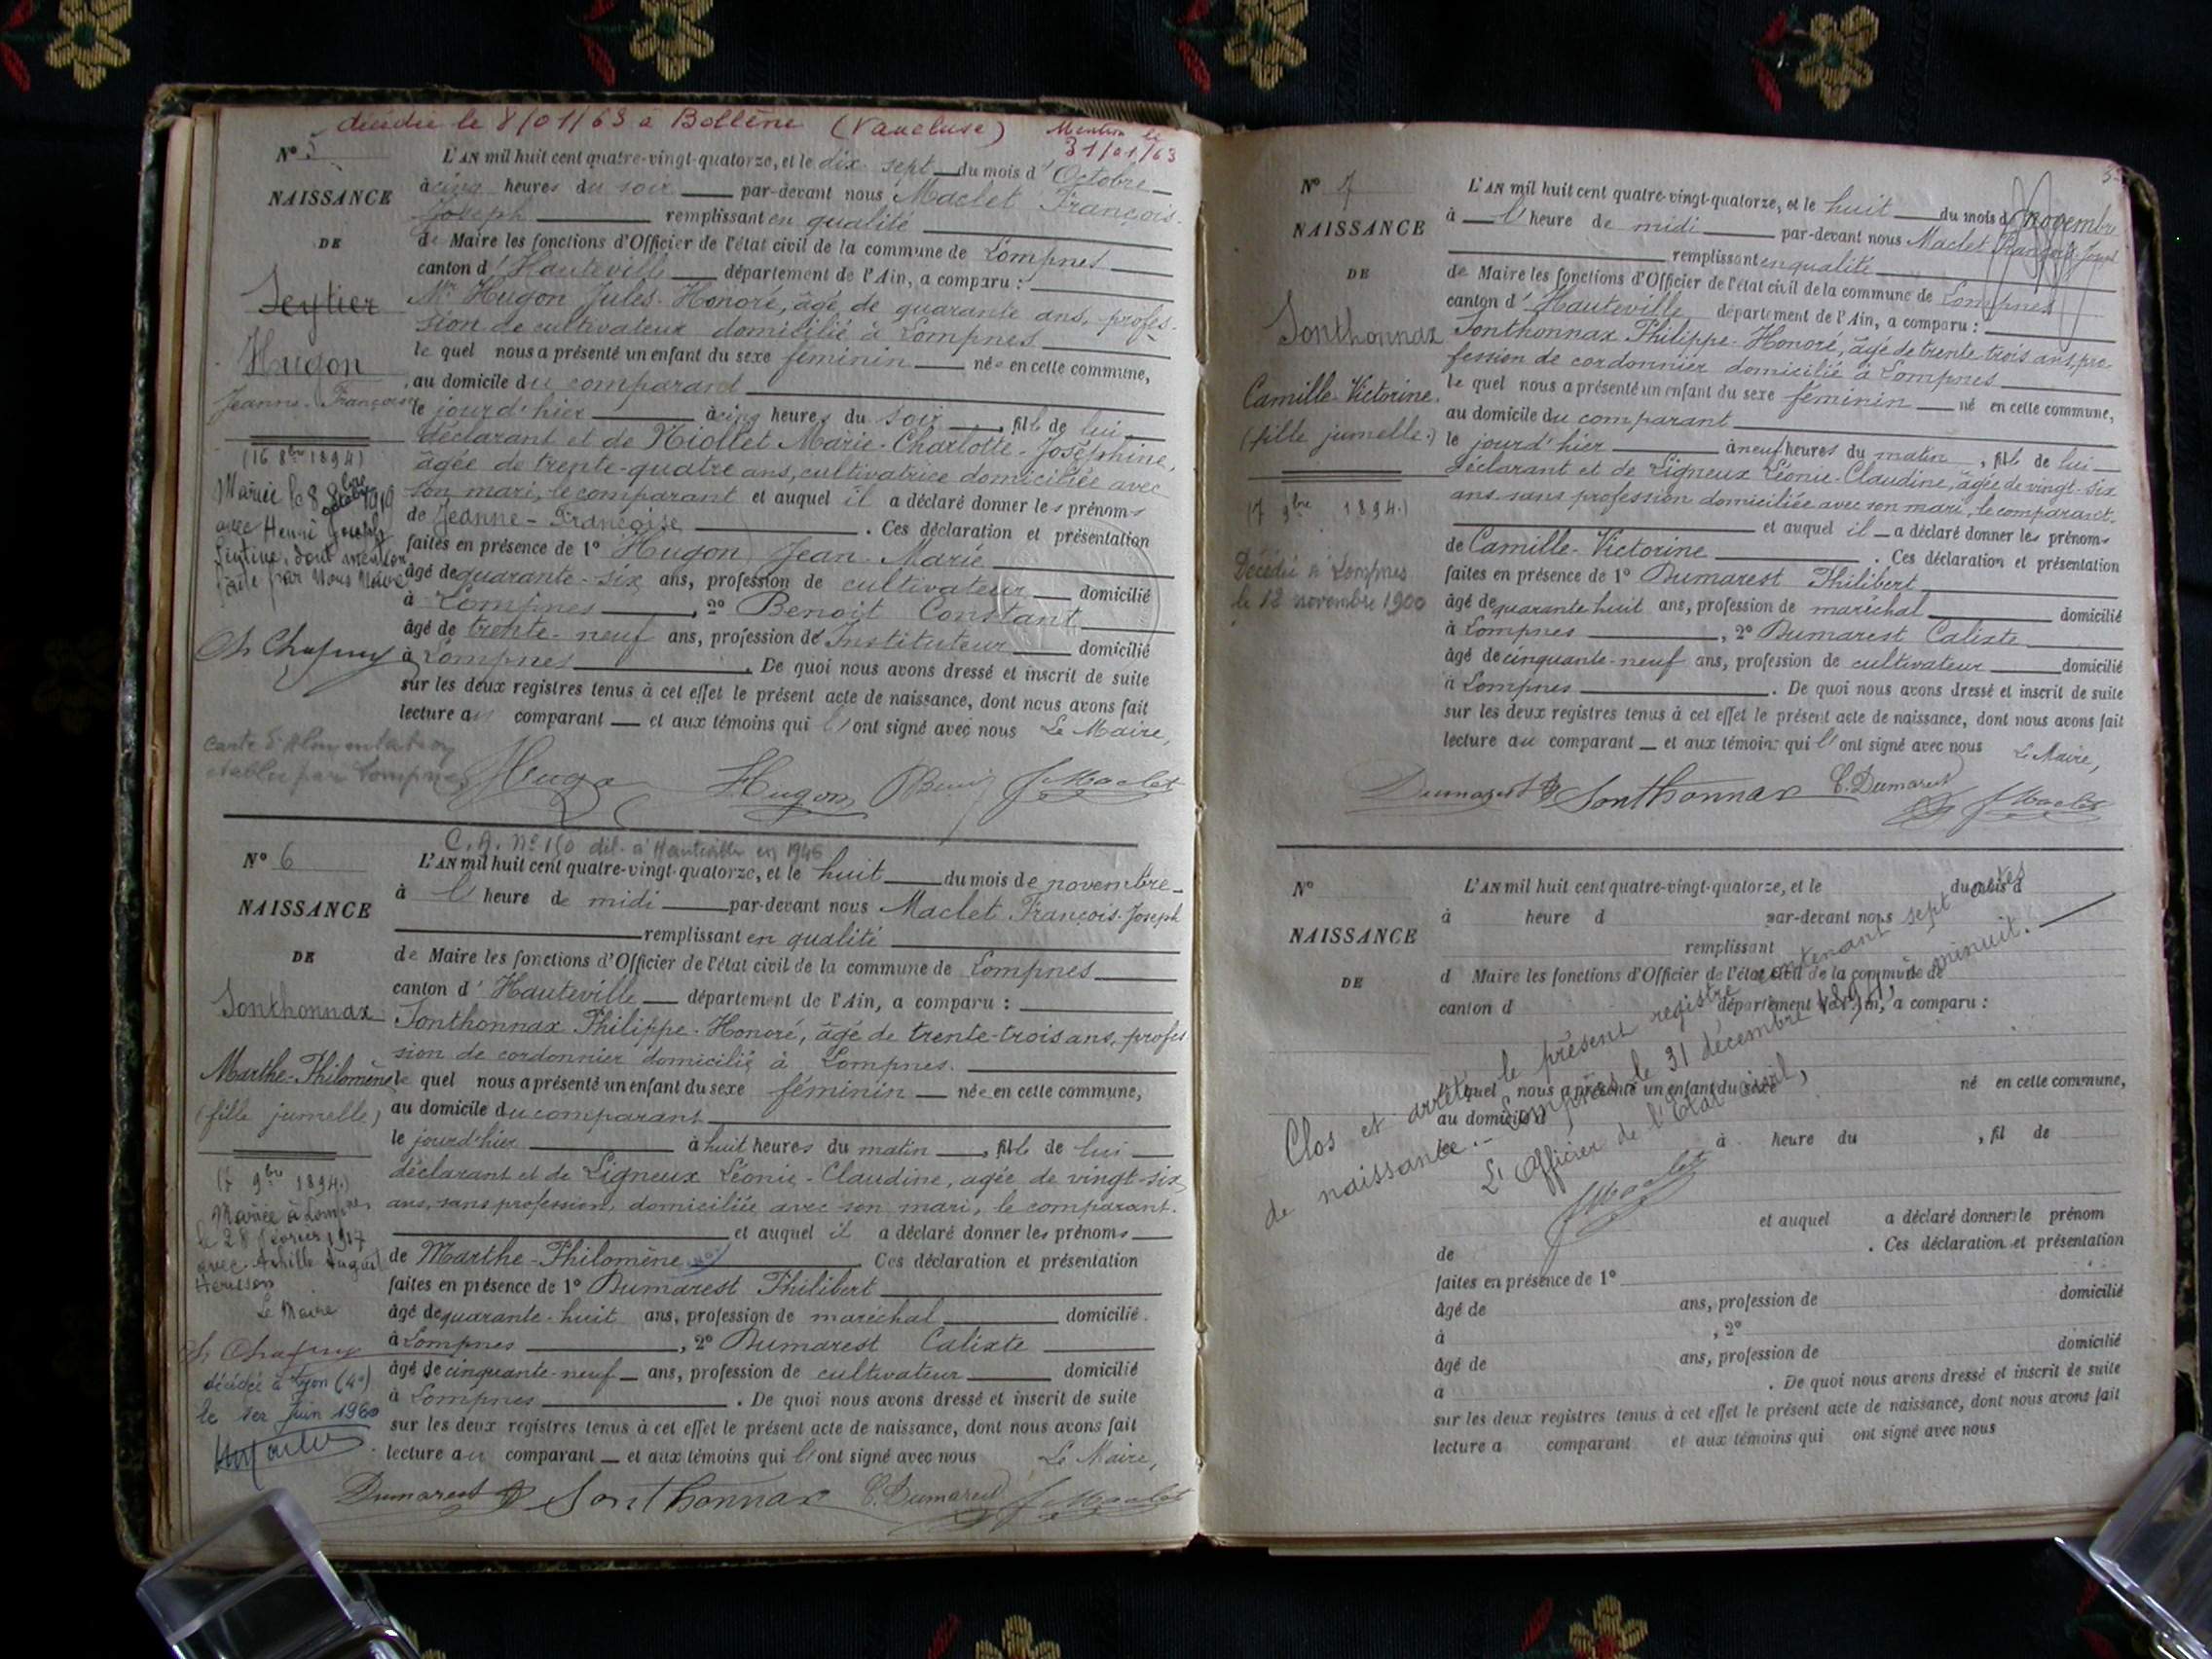 décédée le 8/01/63 à Bollène (Vaucluse) Mention le 31/01/63
N° 5
NAISSANCE
DE
Seytier
Hugon
Jeanne-Françoise
(16 8bre 1894)
Mariée le 8
1919
avec Henri Joseph
dont mention
faite par Nous Maire
Ch Chapuy
L'AN mil huit cent quatre-vingt-quatorze, et le dix-sept du mois d'Octobre
à cinq heures du soir par-devant nous Maclet François-
Joseph remplissant en qualité
de Maire les fonctions d'Officier de l'état civil de la commune de Lompnes
canton d'Hauteville département de l'Ain, a comparu :
Mr Hugon Jules-Honoré, âgé de quarante ans, profes-
sion de cultivateur domicilié à Lompnes
le quel nous a présenté un enfant du sexe féminin née en cette commune,
au domicile du comparant
le jour d'hier à cinq heures du soir, fille de lui
déclarant et de Niollet Marie-Charlotte-Joséphine,
âgée de trente-quatre ans, cultivatrice domiciliée avec
son mari, le comparant et auquel il a déclaré donner les prénoms
de Jeanne-Françoise. Ces déclaration et présentation
faites en présence de 1° Hugon Jean-Marie
âgé de quarante-six ans, profession de cultivateur domicilié
à Lompnes, 2° Benoit Constant
âgé de trente-neuf ans, profession d'Instituteur domicilié
à Lompnes. De quoi nous avons dressé et inscrit de suite
sur les deux registres tenus à cet effet le présent acte de naissance, dont nous avons fait
lecture au comparant et aux témoins qui l'ont signé avec nous Le Maire,
carte d'Alimentation
établie par Lompnes
Hugon Hugon Benoit J Maclet
C.A. N° 150 dél. à Hauteville en 1946
N° 6
NAISSANCE
DE
Sonthonnax
Marthe-Philomène
(fille jumelle)
(7 9bre 1894.)
Mariée à Lompnes
le 28 février 1917
avec Achille August
Hérisson
Le Maire
Ch Chapuy
décédée à Lyon (4e)
le 1er Juin 1960
L'AN mil huit cent quatre-vingt-quatorze, et le huit du mois de novembre
à l'heure de midi par-devant nous Maclet François-Joseph
remplissant en qualité
de Maire les fonctions d'Officier de l'état civil de la commune de Lompnes
canton d'Hauteville département de l'Ain, a comparu :
Sonthonnax Philippe-Honoré, âgé de trente-trois ans, profes
sion de cordonnier domicilié à Lompnes.
le quel nous a présenté un enfant du sexe féminin née en cette commune,
au domicile du comparant
le jourd'hier à huit heures du matin, fille de lui
déclarant et de Ligneux Léonie-Claudine, agée de vingt-six
ans, sans profession, domiciliée avec son mari, le comparant.
et auquel il a déclaré donner les prénoms
de Marthe-Philomène Ces déclaration et présentation
faites en présence de 1° Dumarest Philibert
âgé de quarante-huit ans, profession de maréchal domicilié
à Lompnes, 2° Dumarest Calixte
âgé de cinquante-neuf ans, profession de cultivateur domicilié
à Lompnes. De quoi nous avons dressé et inscrit de suite
sur les deux registres tenus à cet effet le présent acte de naissance, dont nous avons fait
lecture au comparant et aux témoins qui l'ont signé avec nous Le Maire,
Dumarest Sonthonnax C. Dumarest J Maclet
N° 7
NAISSANCE
DE
Sonthonnax
Camille-Victorine.
(fille jumelle.)
(7 9bre 1894.)
Décédée à Lompnes
le 12 novembre 1900
L'AN mil huit cent quatre-vingt-quatorze, et le huit du mois de novembre
à l'heure de midi par-devant nous Maclet François-Joseph
remplissant en qualité
de Maire les fonctions d'Officier de l'état civil de la commune de Lompnes
canton d'Hauteville département de l'Ain, a comparu :
Sonthonnax Philippe-Honoré, âgé de trente trois ans, pro-
fession de cordonnier domicilié à Lompnes
le quel nous a présenté un enfant du sexe féminin né en cette commune,
au domicile du comparant
le jourd'hier à neuf heures du matin, fille de lui
déclarant et de Ligneux Léonie-Claudine, âgée de vingt-six
ans sans profession domiciliée avec son mari, le comparant.
et auquel il a déclaré donner les prénoms
de Camille-Victorine. Ces déclaration et présentation
faites en présence de 1° Dumarest Philibert
âgé de quarante huit ans, profession de maréchal domicilié
à Lompnes, 2° Dumarest Calixte
âgé de cinquante-neuf ans, profession de cultivateur domicilié
à Lompnes. De quoi nous avons dressé et inscrit de suite
sur les deux registres tenus à cet effet le présent acte de naissance, dont nous avons fait
lecture au comparant et aux témoins qui l'ont signé avec nous Le Maire,
Dumarest Sonthonnax C. Dumarest J Maclet
N°
NAISSANCE
DE
L'AN mil huit cent quatre-vingt-quatorze, et le du mois d
à heure d par-devant nous
remplissant
d Maire les fonctions d'Officier de l'état civil de la commune de
canton d département de l'Ain, a comparu :
lequel nous a présenté un enfant du sexe né en cette commune,
au domicile d
le à heure du , fil de
et auquel a déclaré donner le prénom
de . Ces déclaration et présentation
faites en présence de 1°
âgé de ans, profession de domicilié
à , 2°
âgé de ans, profession de domicilié
à . De quoi nous avons dressé et inscrit de suite
sur les deux registres tenus à cet effet le présent acte de naissance, dont nous avons fait
lecture a comparant et aux témoins qui ont signé avec nous
Clos et arrêté le présent registre contenant sept actes
de naissance.- Lompnes le 31 décembre 1894, à minuit.
L'Officier de l'Etat civil,
J Maclet